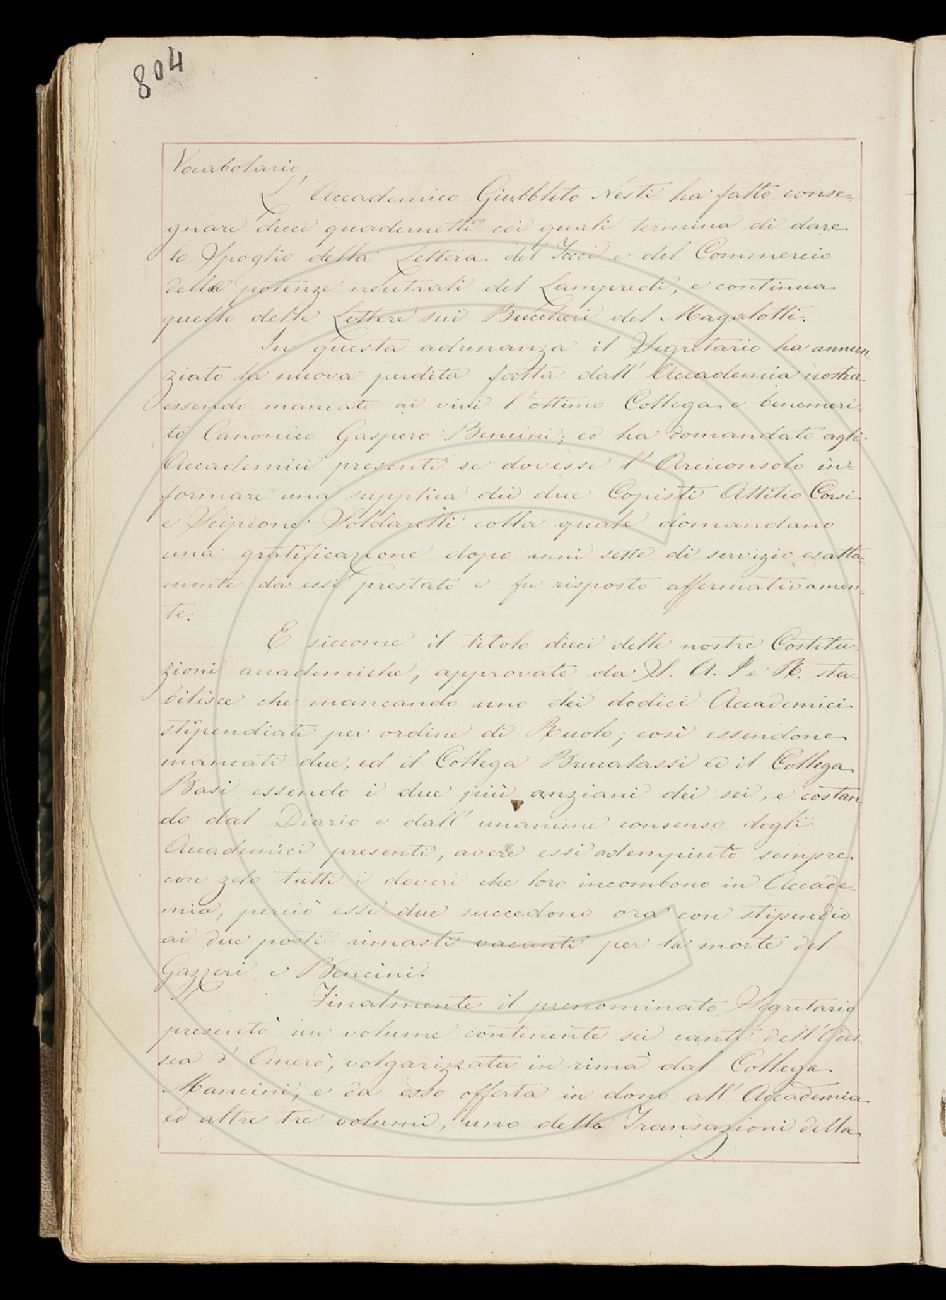 804
Vocabolario.
L'Accademico Giubbileo Nesti ha fatto conse-
gnare dieci quadernetti coi quali termina di dare
lo Spoglio della Lettera del Tocci e del Commercio
delle potenze neutrali del Lampredi, e continua
quello delle Lettere sui Buccheri del Magalotti.
In questa adunanza il Segretario ha annun-
ziato la nuova perdita fatta dall'Accademia nostra
essendo mancato ai vivi l'ottimo Collega e benemeri-
to Canonico Gaspero Bencini; ed ha domandato agli
Accademici presenti se dovesse l'Arciconsolo in-
formare una supplica dei due Copisti Attilio Corsi
e Scipione Soldaretti colla quale domandano
una gratificazione dopo anni sette di servizio esatta-
mente da essi prestato e fu risposto affermativamen-
te.
E siccome il titolo dieci delle nostre Costitu-
zioni accademiche, approvate da S. A. I e R. sta-
bilisce che mancando uno dei dodici Accademici
stipendiati per ordine di Ruolo; così essendone
mancati due, ed il Collega Brucalassi ed il Collega
Basi essendo i due più anziani dei sei, e costan-
do dal Diario e dall'unanime consenso degli
Accademici presenti, avere essi adempiuto sempre
con zelo tutti i doveri che loro incombono in Accade-
mia, perciò essi due succedono ora con stipendio
ai due posti rimasti vacanti per la morte del
Gazzeri e Bencini.
Finalmente il prenominato Segretario
presentò un volume contenente sei canti dell'Odis-
sea d'Omero, volgarizzata in rima dal Collega
Mancini, e da esso offerta in dono all'Accademia
ed altre tre volumi, uno delle Transazioni della